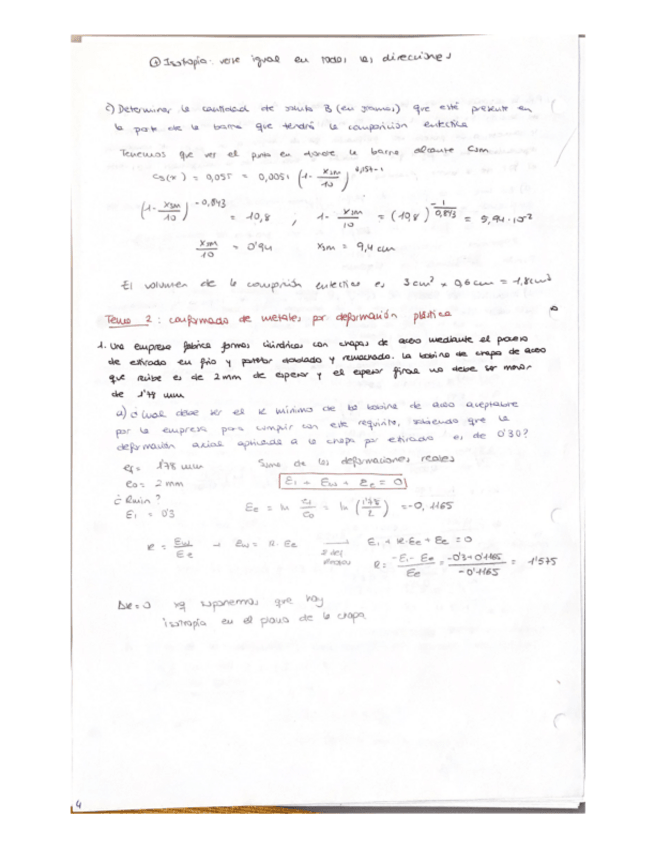 Isotropía: verse igual en todas las direcciones
c) Determinar la cantidad de soluto B (en gramos) que está presente en
la parte de la barra que tendrá la composición eutéctica
Tenemos que ver el punto en donde la barra alcanza Csm
Cs(x) = 0,055 = 0,0051 (1 - Xsm/10)^0,157-1
(1 - Xsm/10)^-0,843 = 10,8 ; 1 - Xsm/10 = (10,8)^-1/0,843 = 5,94·10^-2
Xsm/10 = 0'94 Xsm = 9,4 cm
El volumen de la composición eutéctica es 3 cm² × 0,6 cm = 1,8 cm³
Tema 2: conformado de metales por deformación plástica
1. Una empresa fabrica formas cilíndricas con chapas de acero mediante el proceso
de estirado en frío y posterior doblado y remachado. La bobina de chapa de acero
que recibe es de 2 mm de espesor y el espesor final no debe ser menor
de 1'78 mm
a) ¿Cual debe ser el R mínimo de la bobina de acero aceptable
por la empresa para cumplir con este requisito, sabiendo que la
deformación axial aplicada a la chapa por estirado es de 0'30?
ef = 1'78 mm Suma de las deformaciones reales
eo = 2 mm El + Ew + Ee = 0
¿Rmin?
El = 0'3 Ee = ln ef/eo = ln (1'78/2) = -0,1165
R = Ew/Ee → Ew = R·Ee El + R·Ee + Ee = 0
R = -El - Ee/Ee = -0'3+0'1165/-0'1165 = 1'575
ΔR = 0 xq suponemos que hay
isotropía en el plano de la chapa
4